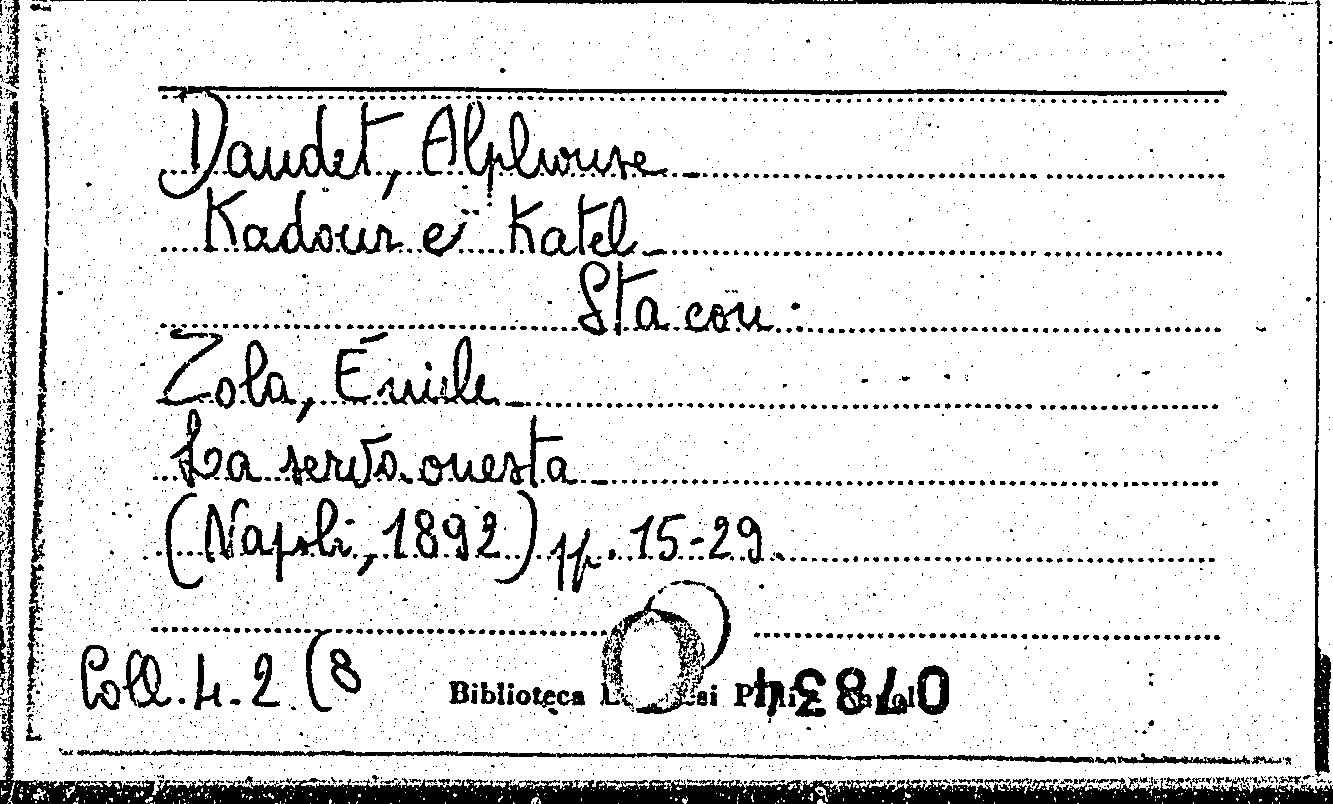 Daudet, Alphonse
Kadour e Katel
Sta con:
Zola, Émile
La serva onesta
(Napoli, 1892) pp. 15-29.
Coll. 4. 2 (8
Biblioteca
07834